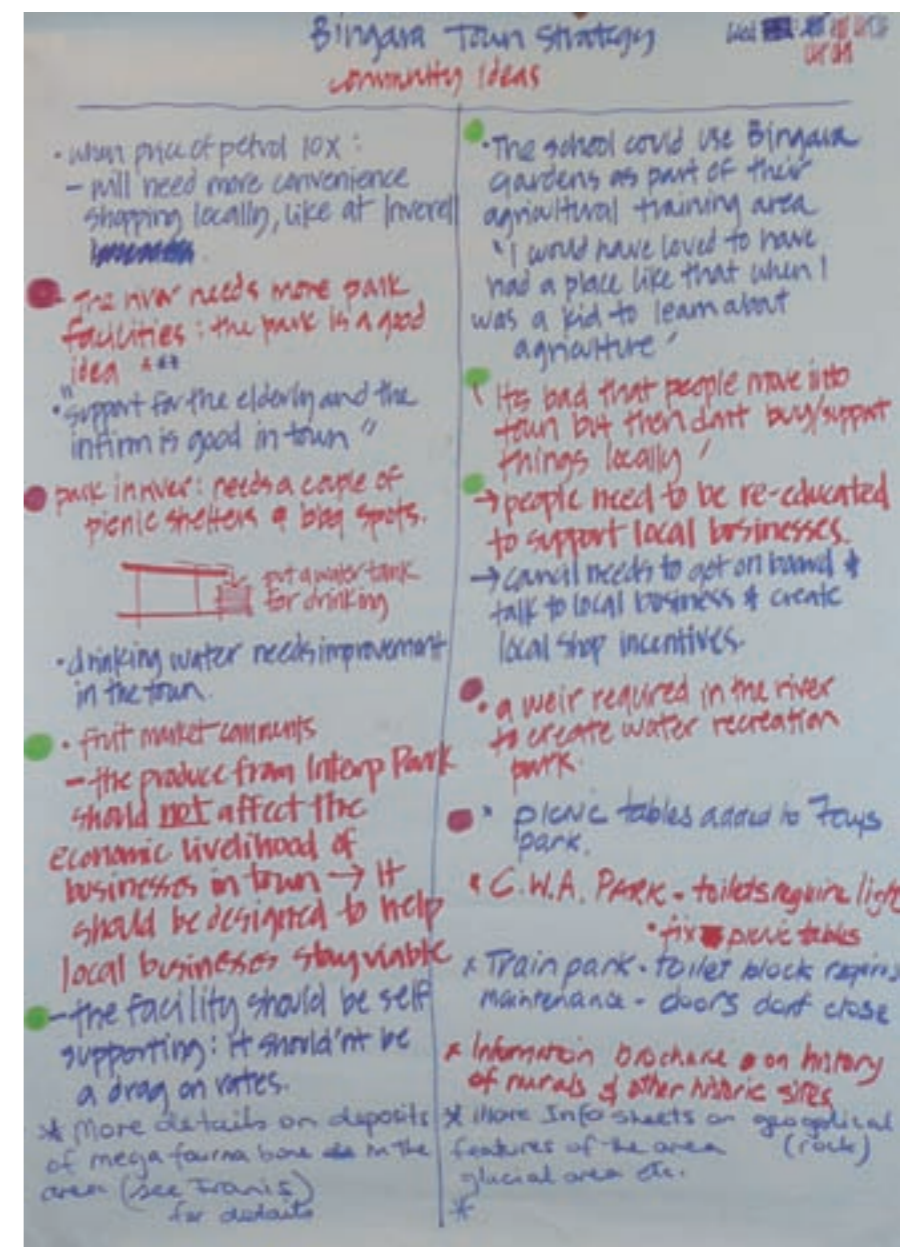 Bingara Town Strategy
community Ideas
• when price of petrol 10x :
– will need more convenience
shopping locally, like at Inverell
• The river needs more park
facilities : the park is a good
idea ***
• "support for the elderly and the
infirm is good in town "
• park in river : needs a couple of
picnic shelters & bbq spots.
put a water tank
for drinking
• drinking water needs improvement
in the town.
• fruit market comments
– the produce from Interp Park
should not affect the
economic livelihood of
businesses in town → It
should be designed to help
local businesses stay viable
– the facility should be self
supporting : it should'nt be
a drag on rates.
* More details on deposits
of mega fourna bone in the
area (see Travis)
for details
• The school could use Bingara
gardens as part of their
agricultural training area
"I would have loved to have
had a place like that when I
was a kid to learn about
agriculture "
Its bad that people move into
town but then dont buy/support
things locally
→ people need to be re-educated
to support local businesses.
→ council needs to get on board &
talk to local business & create
local shop incentives.
• a weir required in the river
to create water recreation
park.
• picnic tables added to
park.
• C.W.A. PARK - toilets require light
• fix picnic tables
x Train park - toilet block requires
maintenance - doors dont close
x Information brochure on history
of murals & other historic sites
* More Info sheets on
features of the area (rock)
glacial area etc.
*